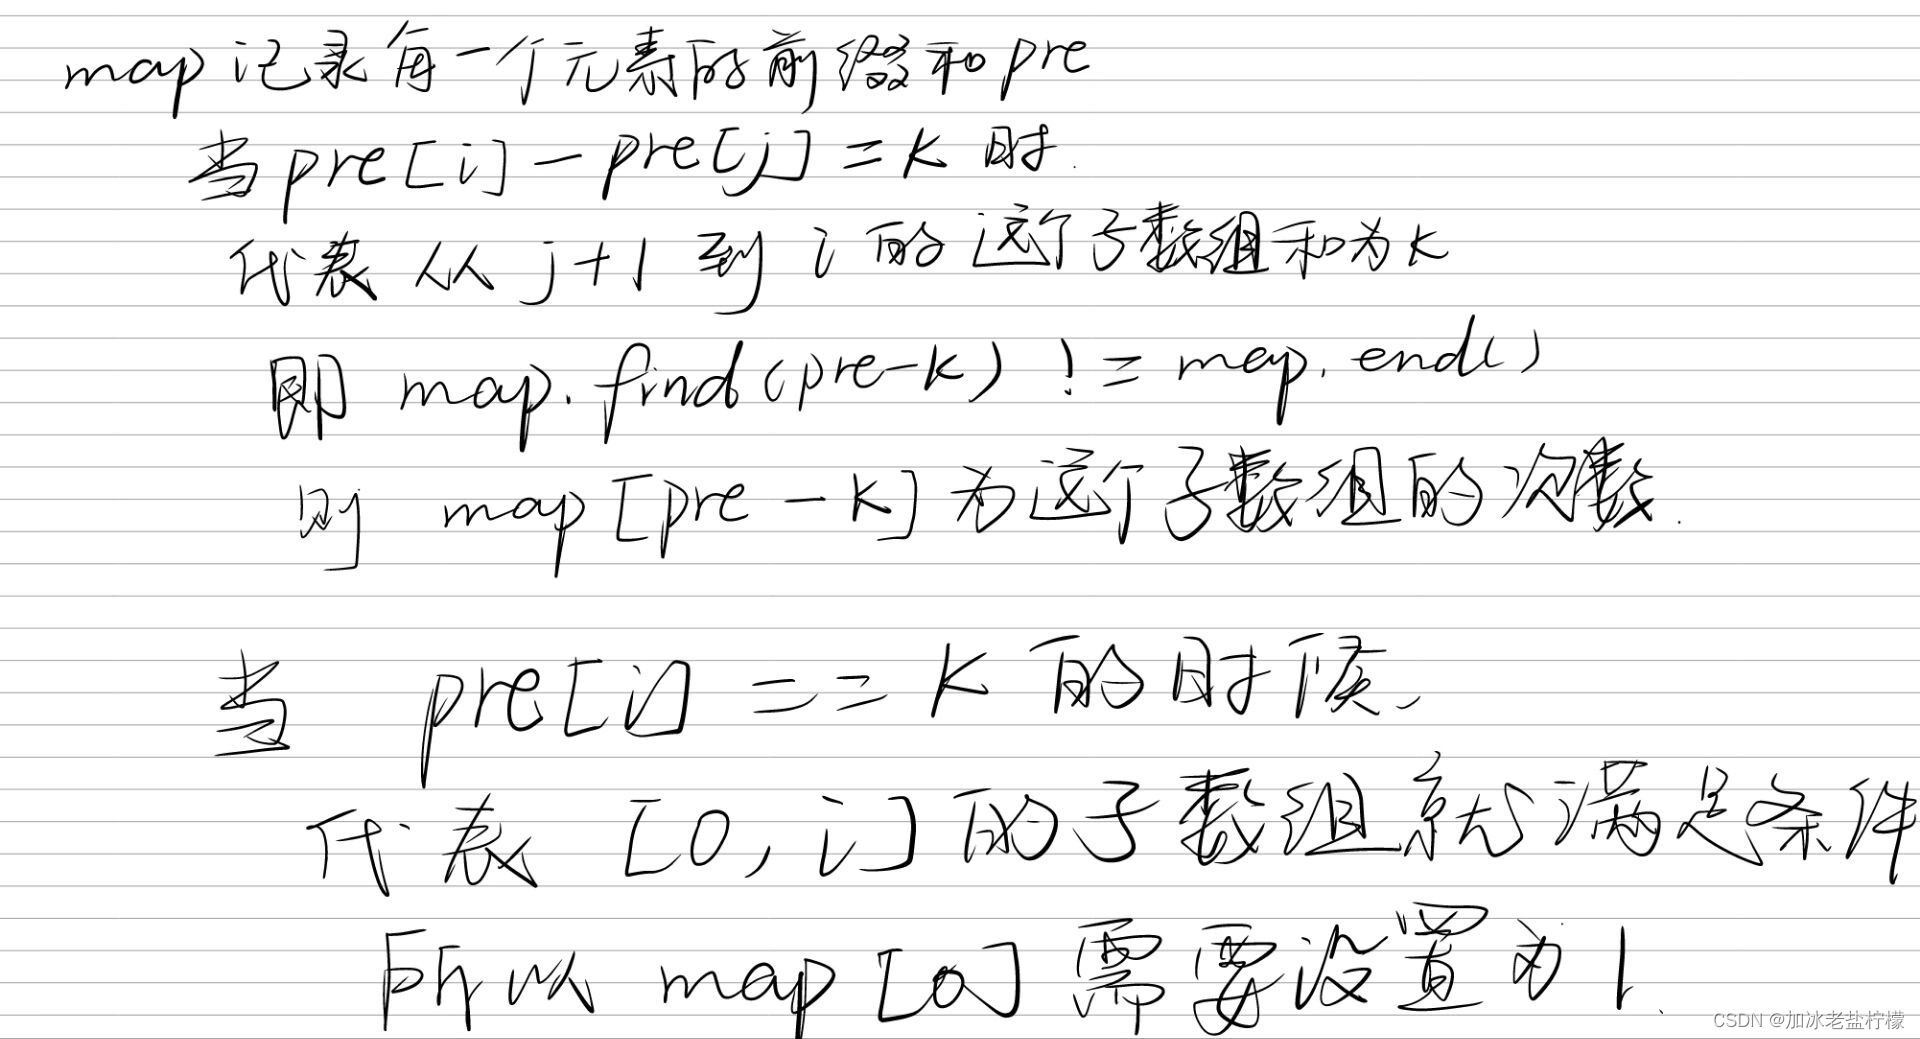 map记录每一个元素的前缀和pre
当pre[i]-pre[j]=k时.
代表从j+1到i的这个子数组和为k
即map.find(pre-k)!=map.end()
则map[pre-k]为这个子数组的次数.
当pre[i]==k的时候、
代表[0,i]的子数组就满足条件
所以map[0]需要设置为1.
CSDN @加冰老盐柠檬